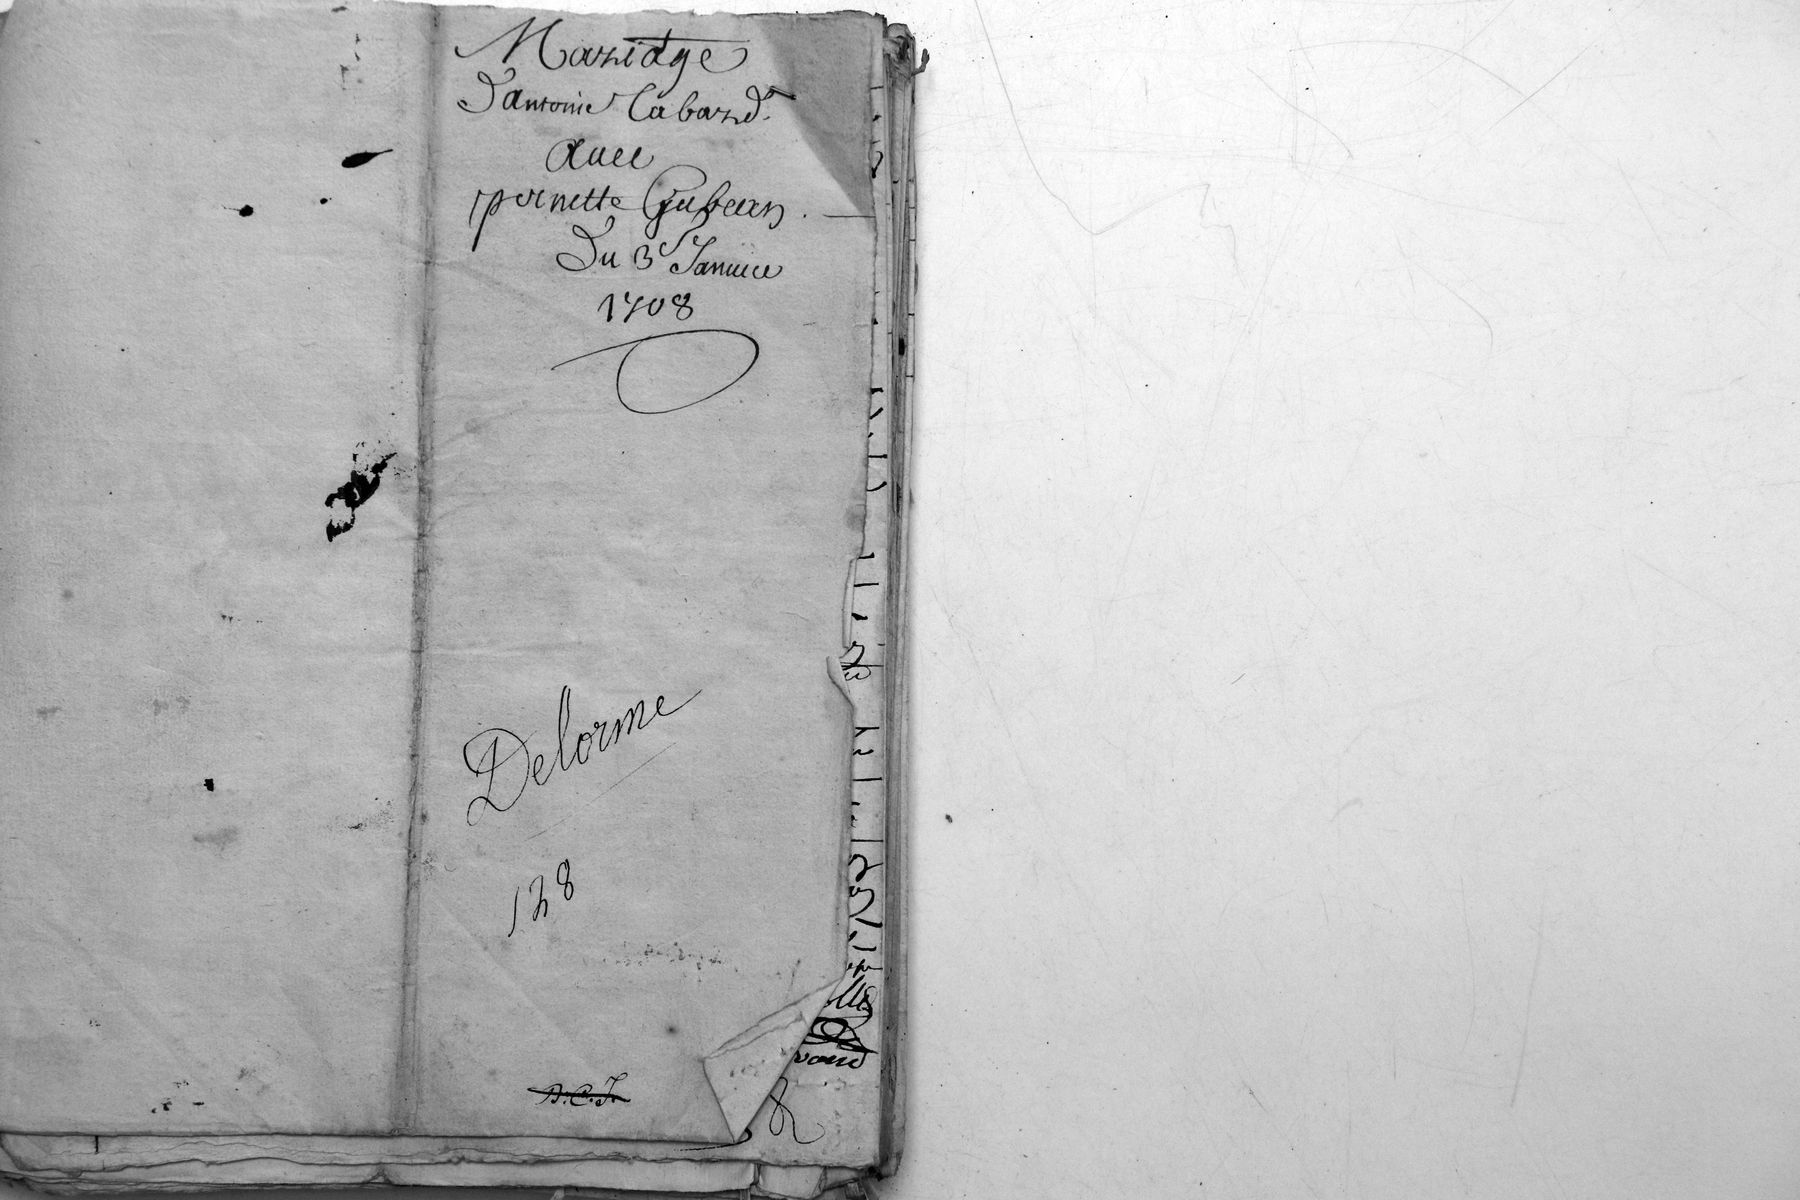 Mariage
d'antoine Cabard.
Auec
pernette Gubean.
Du 3e Januier
1708
Delorme
128
B.C.J.